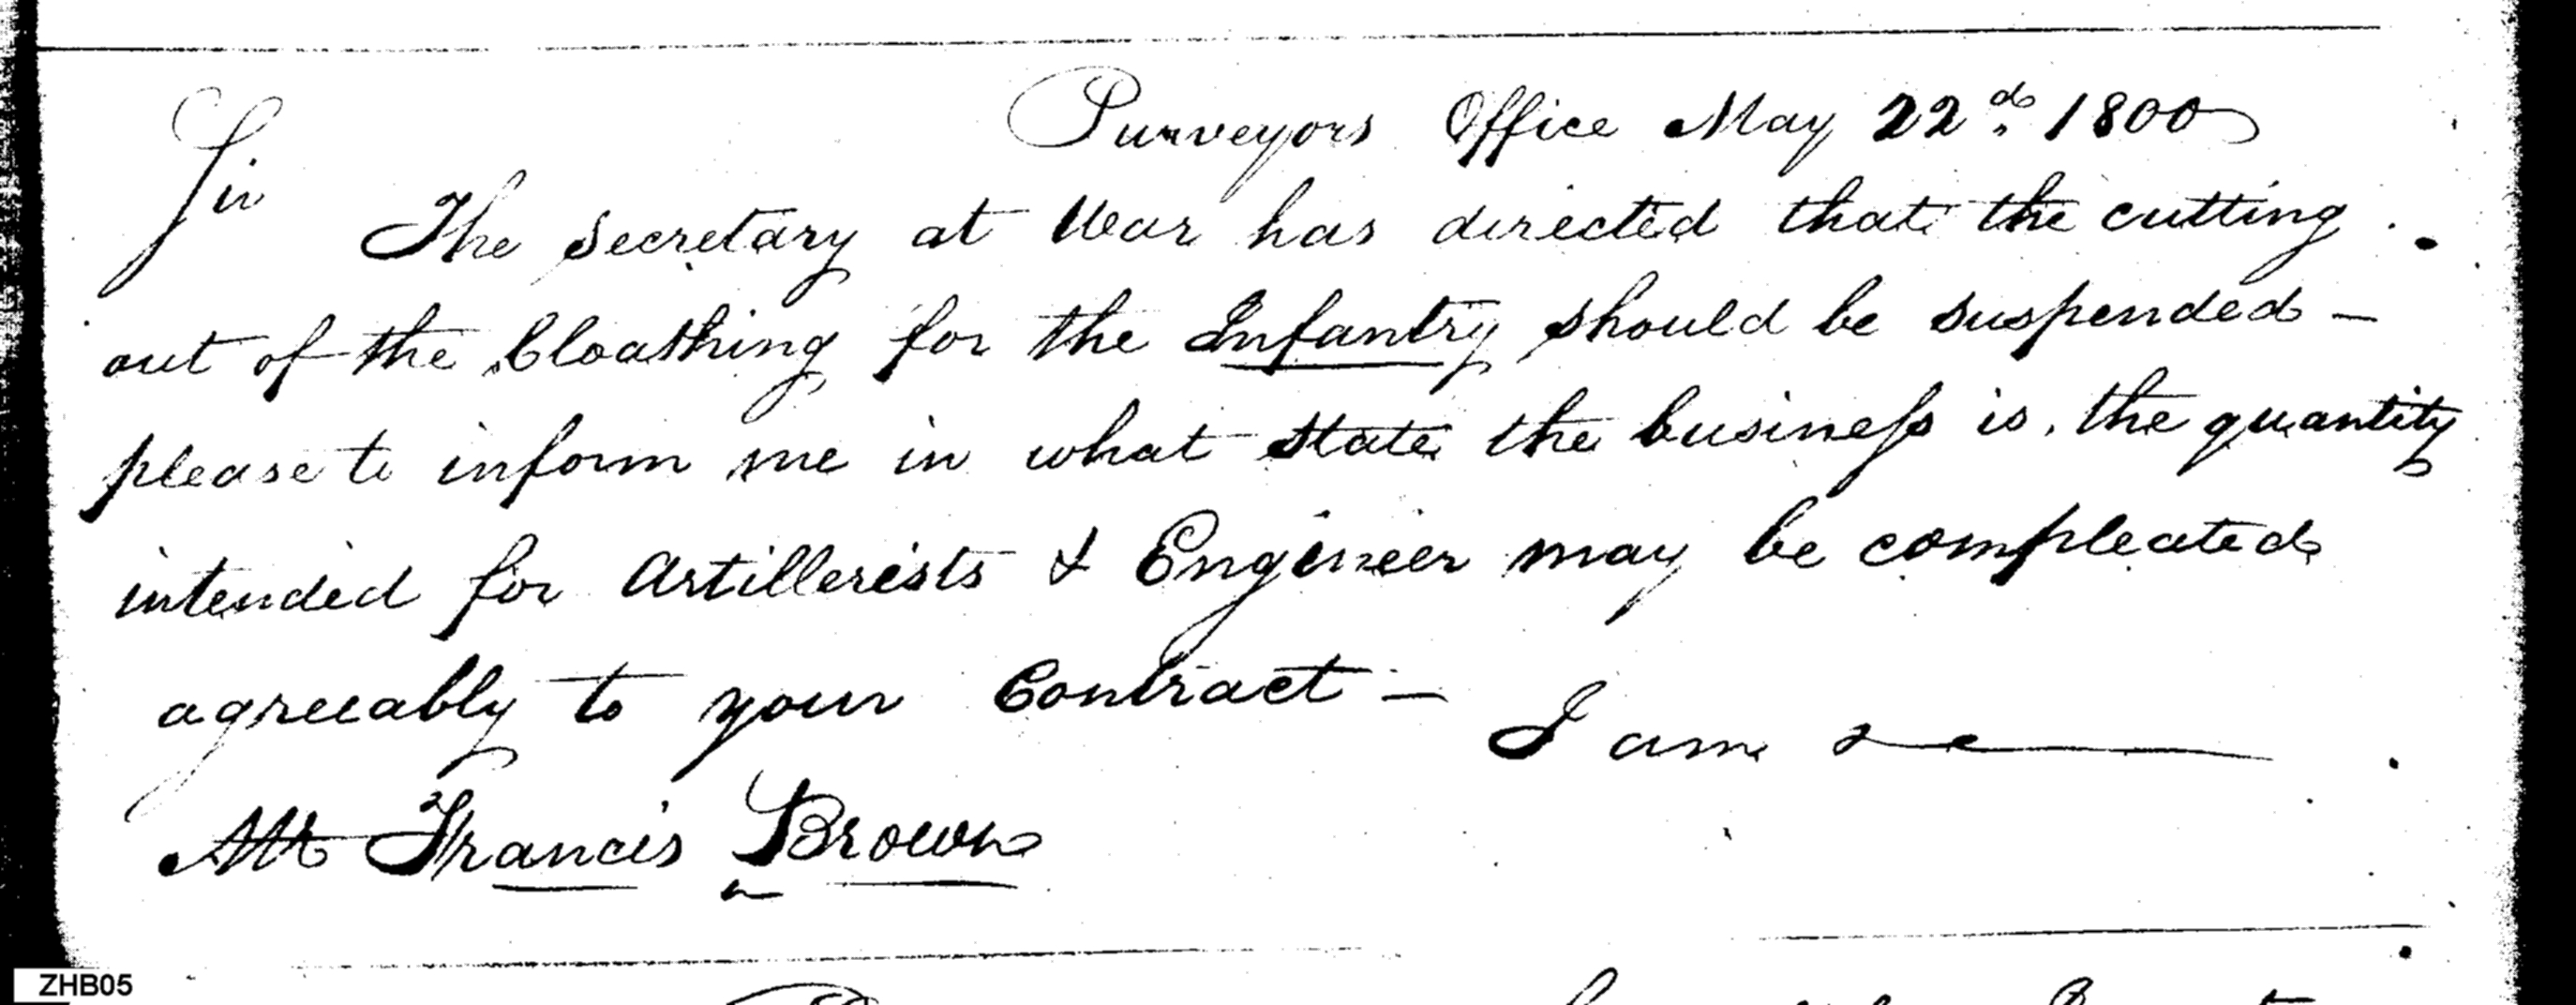 Purveyors Office May 22d. 1800
Sir
The Secretary at War has directed that the cutting
out of the Cloathing for the Infantry should be suspended –
please to inform me in what state the business is, the quantity
intended for Artillerists & Engineer may be compleated
agreeably to your Contract –
I am &c
Mr Francis Brown
ZHB05